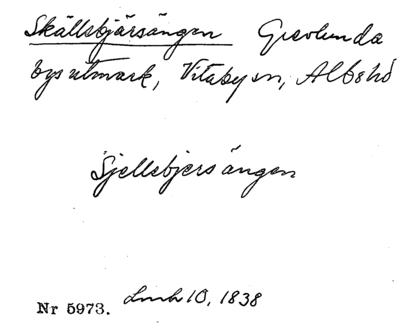 Skällsbjärsängen Grevlunda
bys utmark, Vitaby sn, Albo hd
Sjellsbjersängen
Nr 5973. Lmh 10, 1838